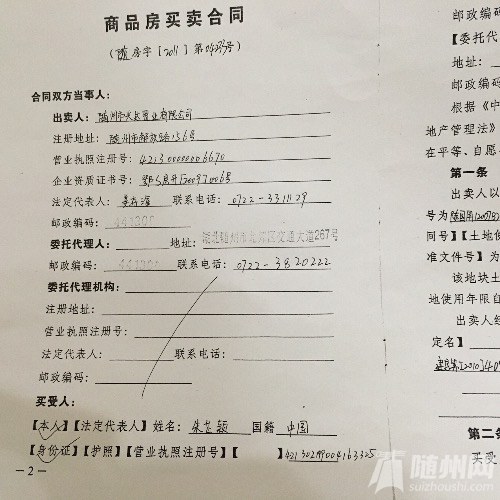 商品房买卖合同
（随房字［2011］第 号）
合同双方当事人：
出卖人：随州市 置业有限公司
注册地址：随州市解放路156号
营业执照注册号：42130000006670
企业资质证书号：
法定代表人： 联系电话：0722-3311129
邮政编码：441300
委托代理人： 地址：湖北随州市北郊区交通大道267号
邮政编码：441300 联系电话：0722-3820222
委托代理机构：
注册地址：
营业执照注册号：
法定代表人： 联系电话：
邮政编码：
买受人：
【本人】【法定代表人】姓名：朱 颖 国籍 中国
【身份证】【护照】【营业执照注册号】【 】
－2－
邮政编码
【委托代
地址：
邮政编码
根据《中
地产管理法》
在平等、自愿、
第一条
出卖人以
号为
同号】【土地使
准文件号】为
该地块土
地使用年限自
出卖人经
定名】
第二条
买受
随州网
suizhoushi.com